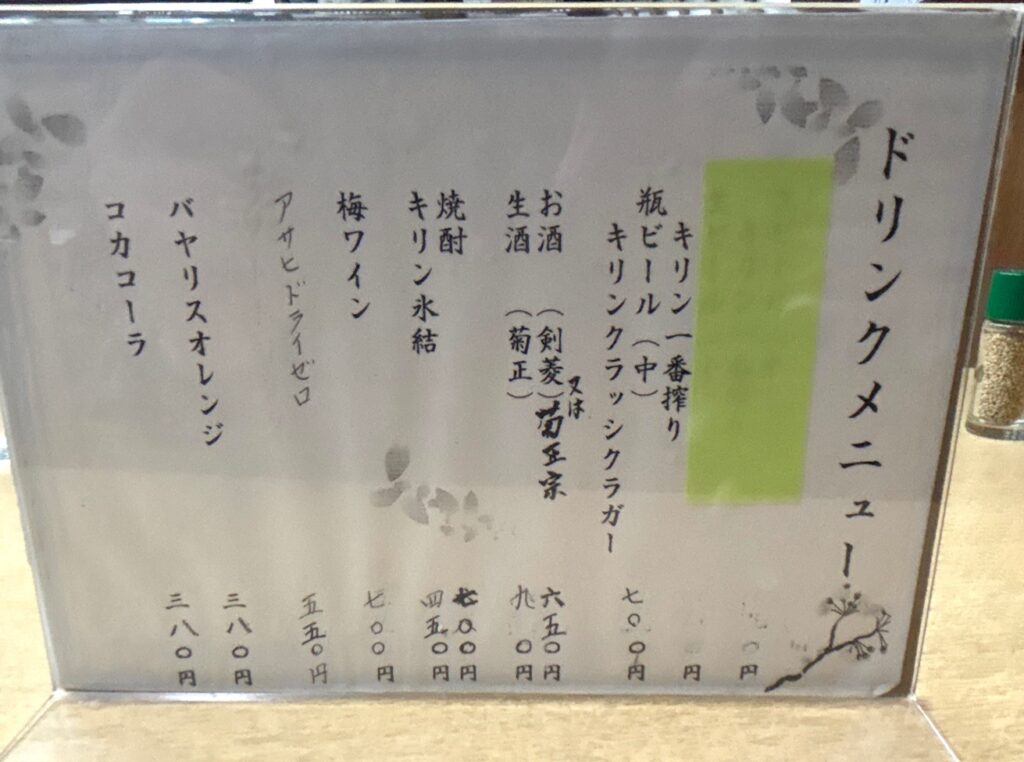 ドリンクメニュー
円
円
キリン一番搾り
瓶ビール（中）
キリンクラッシクラガー
七〇〇円
お酒　（剣菱）又は菊正宗　六五〇円
生酒　（菊正）　九〇円
焼酎　七〇〇円
キリン氷結　四五〇円
梅ワイン　七〇〇円
アサヒドライゼロ　五五〇円
バヤリスオレンジ　三八〇円
コカコーラ　三八〇円